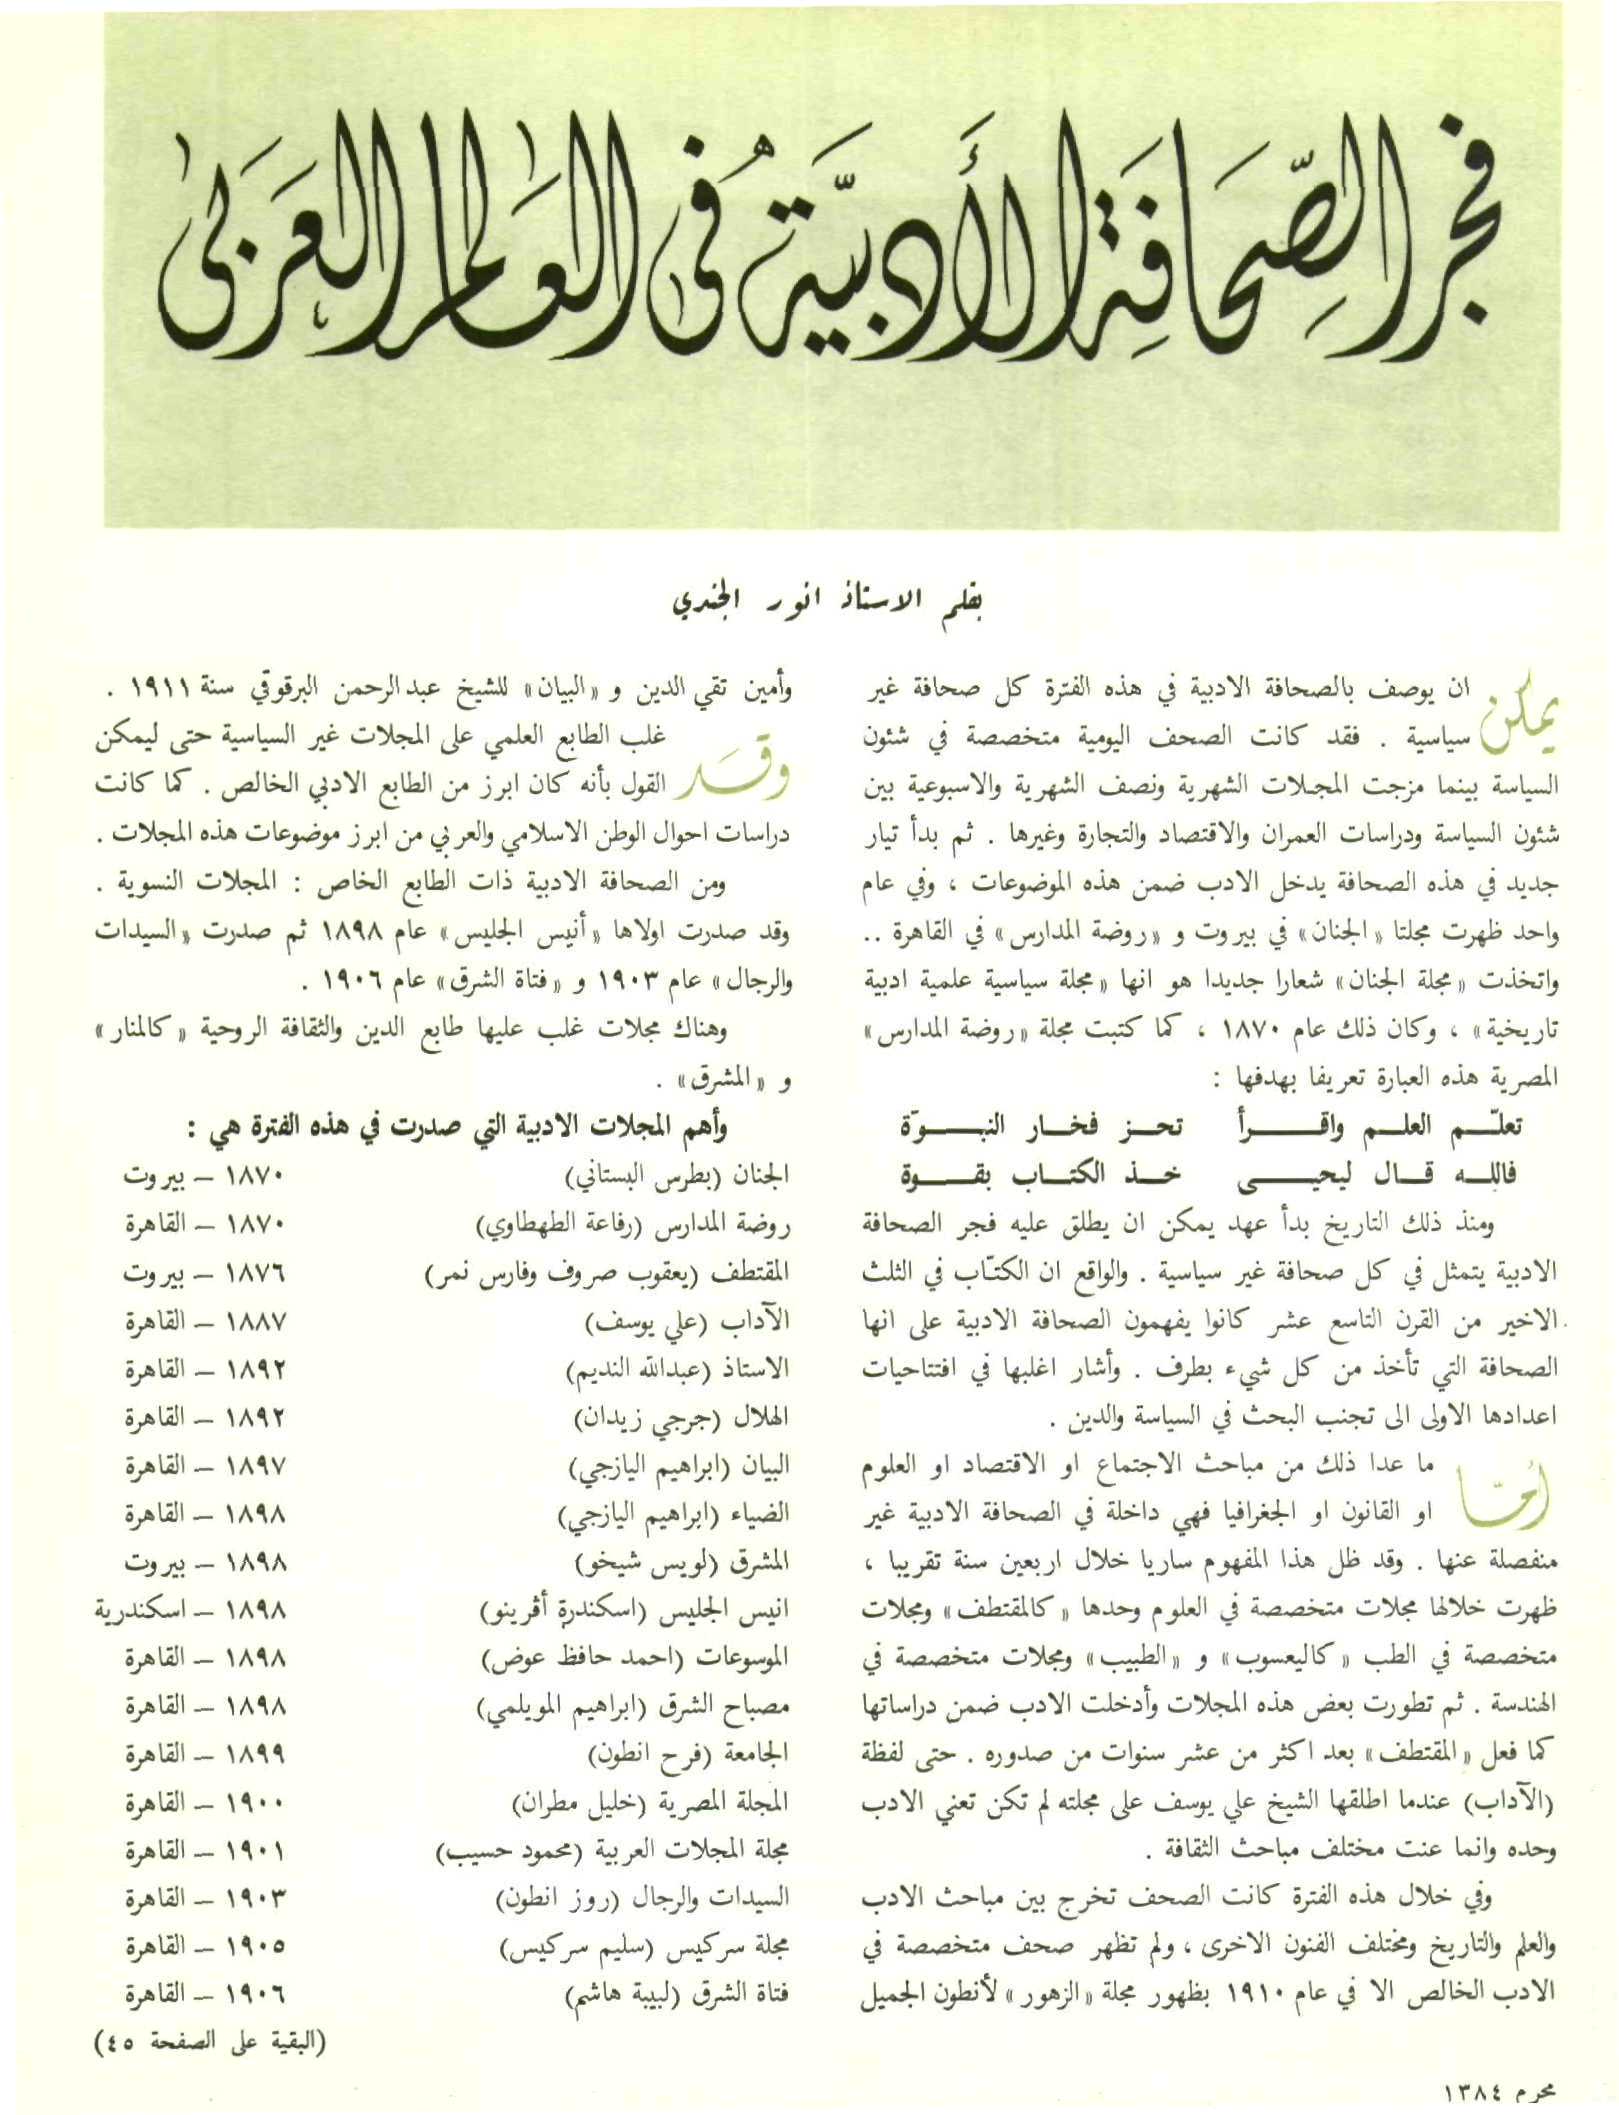 فجر الصِّحَافَةِ الأَدبيَّة في العَالم العَرَبي
بقلم الاستاذ انور الجندي
يمكن ان يوصف بالصحافة الادبية في هذه الفترة كل صحافة غير
سياسية . فقد كانت الصحف اليومية متخصصة في شئون
السياسة بينما مزجت المجلات الشهرية ونصف الشهرية والاسبوعية بين
شئون السياسة ودراسات العمران والاقتصاد والتجارة وغيرها . ثم بدأ تيار
جديد في هذه الصحافة يدخل الادب ضمن هذه الموضوعات ، وفي عام
واحد ظهرت مجلتا «الجنان» في بيروت و «روضة المدارس» في القاهرة ..
واتخذت «مجلة الجنان» شعارا جديدا هو انها «مجلة سياسية علمية ادبية
تاريخية» ، وكان ذلك عام ١٨٧٠ ، كما كتبت مجلة «روضة المدارس»
المصرية هذه العبارة تعريفا بهدفها :
تعلّم العلم واقرأ تحز فخار النبوّة
فالله قال ليحيى خذ الكتاب بقوة
ومنذ ذلك التاريخ بدأ عهد يمكن ان يطلق عليه فجر الصحافة
الادبية يتمثل في كل صحافة غير سياسية . والواقع ان الكتّاب في الثلث
الاخير من القرن التاسع عشر كانوا يفهمون الصحافة الادبية على انها
الصحافة التي تأخذ من كل شيء بطرف . وأشار اغلبها في افتتاحيات
اعدادها الاولى الى تجنب البحث في السياسة والدين .
أمّا ما عدا ذلك من مباحث الاجتماع او الاقتصاد او العلوم
او القانون او الجغرافيا فهي داخلة في الصحافة الادبية غير
منفصلة عنها . وقد ظل هذا المفهوم ساريا خلال اربعين سنة تقريبا ،
ظهرت خلالها مجلات متخصصة في العلوم وحدها «كالمقتطف» ومجلات
متخصصة في الطب «كاليعسوب» و «الطبيب» ومجلات متخصصة في
الهندسة . ثم تطورت بعض هذه المجلات وأدخلت الادب ضمن دراساتها
كما فعل «المقتطف» بعد اكثر من عشر سنوات من صدوره . حتى لفظة
(الآداب) عندما اطلقها الشيخ علي يوسف على مجلته لم تكن تعني الادب
وحده وانما عنت مختلف مباحث الثقافة .
وفي خلال هذه الفترة كانت الصحف تخرج بين مباحث الادب
والعلم والتاريخ ومختلف الفنون الاخرى ، ولم تظهر صحف متخصصة في
الادب الخالص الا في عام ١٩١٠ بظهور مجلة «الزهور» لأنطون الجميل
وأمين تقي الدين و «البيان» للشيخ عبد الرحمن البرقوقي سنة ١٩١١ .
وقَد غلب الطابع العلمي على المجلات غير السياسية حتى ليمكن
القول بأنه كان ابرز من الطابع الادبي الخالص . كما كانت
دراسات احوال الوطن الاسلامي والعربي من ابرز موضوعات هذه المجلات .
ومن الصحافة الادبية ذات الطابع الخاص : المجلات النسوية .
وقد صدرت اولاها «أنيس الجليس» عام ١٨٩٨ ثم صدرت «السيدات
والرجال» عام ١٩٠٣ و «فتاة الشرق» عام ١٩٠٦ .
وهناك مجلات غلب عليها طابع الدين والثقافة الروحية «كالمنار»
و «المشرق» .
وأهم المجلات الادبية التي صدرت في هذه الفترة هي :
الجنان (بطرس البستاني) ١٨٧٠ – بيروت
روضة المدارس (رفاعة الطهطاوي) ١٨٧٠ – القاهرة
المقتطف (يعقوب صروف وفارس نمر) ١٨٧٦ – بيروت
الآداب (علي يوسف) ١٨٨٧ – القاهرة
الاستاذ (عبدالله النديم) ١٨٩٢ – القاهرة
الهلال (جرجي زيدان) ١٨٩٢ – القاهرة
البيان (ابراهيم اليازجي) ١٨٩٧ – القاهرة
الضياء (ابراهيم اليازجي) ١٨٩٨ – القاهرة
المشرق (لويس شيخو) ١٨٩٨ – بيروت
انيس الجليس (اسكندرة أڤرينو) ١٨٩٨ – اسكندرية
الموسوعات (احمد حافظ عوض) ١٨٩٨ – القاهرة
مصباح الشرق (ابراهيم المويلمي) ١٨٩٨ – القاهرة
الجامعة (فرح انطون) ١٨٩٩ – القاهرة
المجلة المصرية (خليل مطران) ١٩٠٠ – القاهرة
مجلة المجلات العربية (محمود حسيب) ١٩٠١ – القاهرة
السيدات والرجال (روز انطون) ١٩٠٣ – القاهرة
مجلة سركيس (سليم سركيس) ١٩٠٥ – القاهرة
فتاة الشرق (لبيبة هاشم) ١٩٠٦ – القاهرة
(البقية على الصفحة ٤٥)
محرم ١٣٨٤